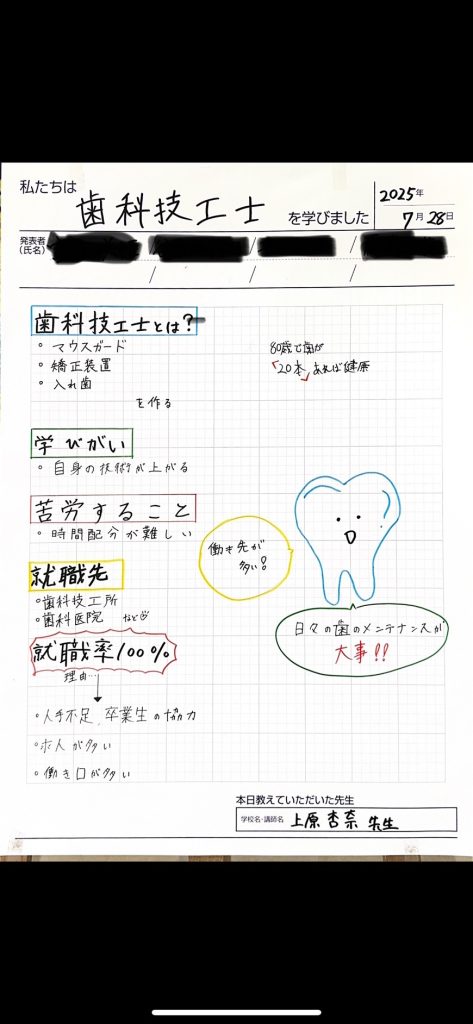 私たちは
歯科技工士
を学びました
2025年
7月28日
発表者
(氏名)
歯科技工士とは?
• マウスガード
• 矯正装置
• 入れ歯
を作る
80歳で歯が
「20本」あれば健康
学びがい
• 自身の技術が上がる
苦労すること
• 時間配分が難しい
働き先が
多い?
就職先
• 歯科技工所
• 歯科医院 など
日々の歯のメンテナンスが
大事!!
就職率100%
理由…
• 人手不足、卒業生の協力
• 求人が多い
• 働き口が多い
本日教えていただいた先生
学校名・講師名 上原杏奈 先生